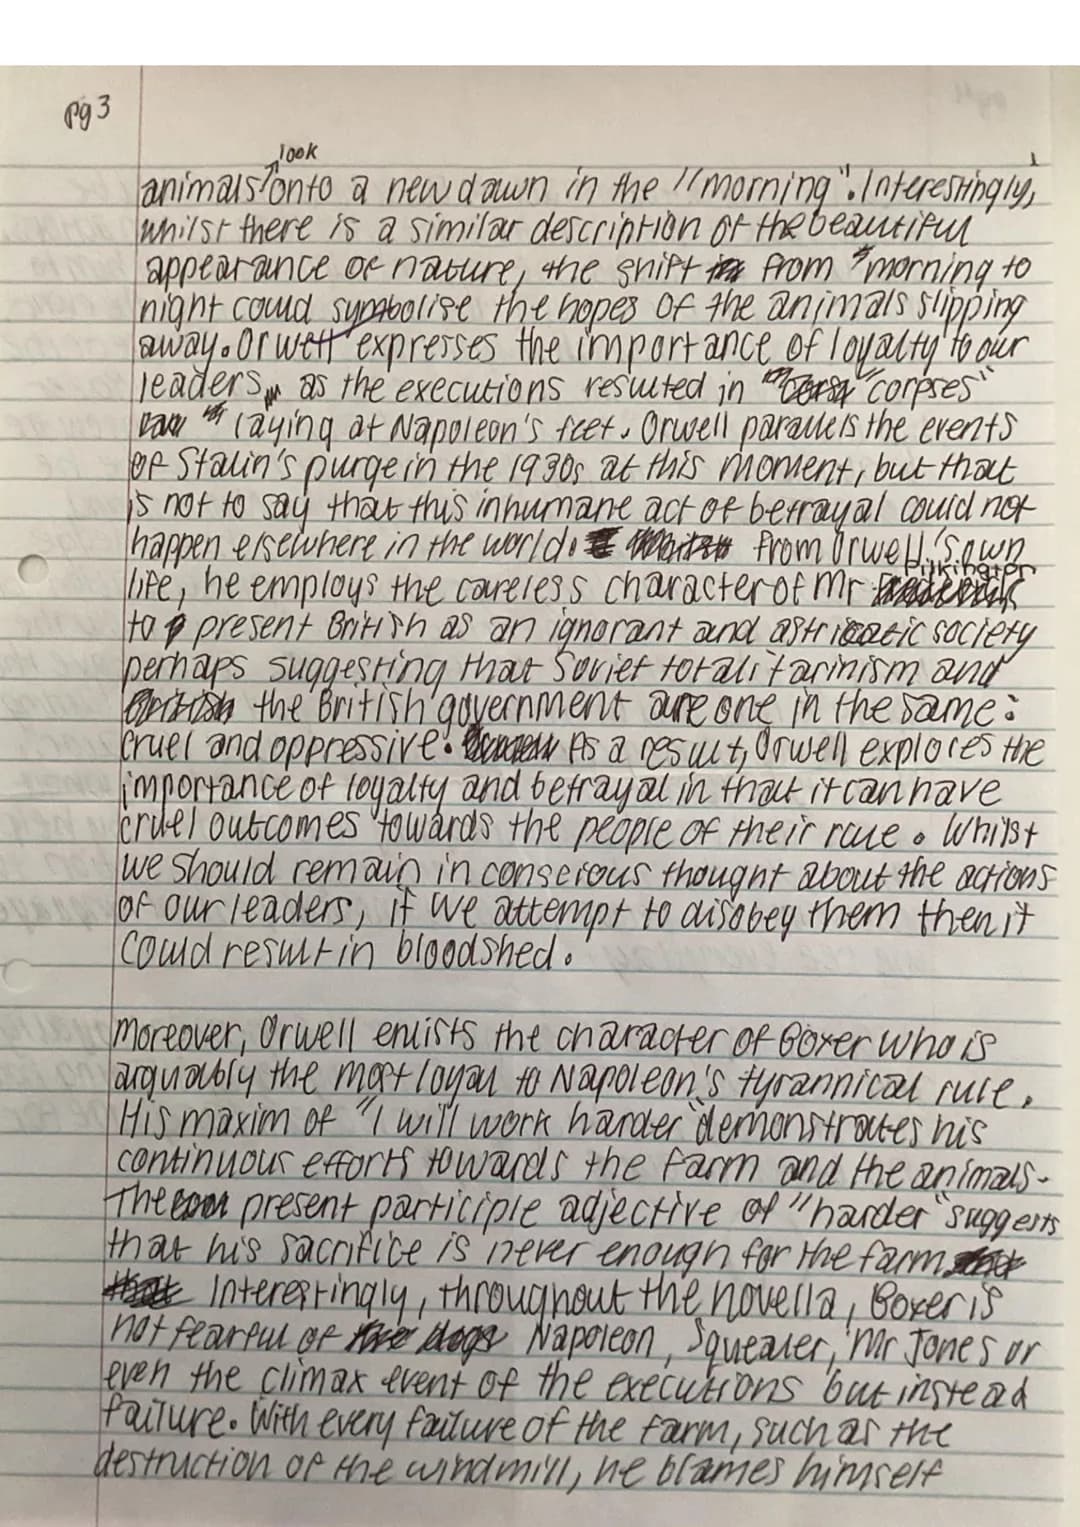 pg 3
look
animals onto a new dawn in the "morning". Interestingly,
whilst there is a similar description of the beautiful
appearance of nature, the shift from "morning to
night could symbolise the hopes of the animals slipping
away. Orwell expresses the importance of loyalty to our
leaders, as the executions resulted in "corpses"
laying at Napoleon's feet. Orwell parallels the events
of Stalin's purge in the 1930s at this moment, but that
is not to say that this inhumane act of betrayal could not
happen elsewhere in the world. from Orwell's own
Pilkington
life, he employs the careless character of Mr
to present British as an ignorant and astricatic society
perhaps suggesting that Soviet totalitarinism and
the British government are one in the same:
cruel and oppressive. As a result, Orwell explores the
importance of loyalty and betrayal in that it can have
cruel outcomes towards the people of their rule. Whilst
we should remain in conscious thought about the actions
of our leaders, if we attempt to disobey them then it
could result in bloodshed.
Moreover, Orwell enlists the character of Boxer who is
arguably the most loyal to Napoleon's tyrannical rule.
His maxim of "I will work harder" demonstrates his
continuous efforts towards the farm and the animals.
The present participle adjective of "harder" suggests
that his sacrifice is never enough for the farm
Interestingly, throughout the novella, Boxer is
not fearful of Napoleon, Squealer, Mr Jones or
even the climax event of the executions but instead
failure. With every failure of the farm, such as the
destruction of the windmill, he blames himself